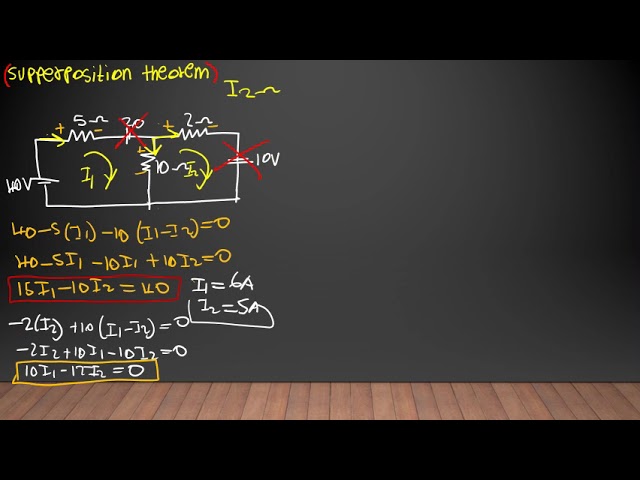 (supperposition theorem)
I2Ω
5Ω 20 2Ω
+ - + -
40V I1 + 10Ω - I2 10V
40-5(I1)-10(I1-I2)=0
40-5I1-10I1+10I2=0
15I1-10I2=40
I1=6A
I2=5A
-2(I2)+10(I1-I2)=0
-2I2+10I1-10I2=0
10I1-12I2=0